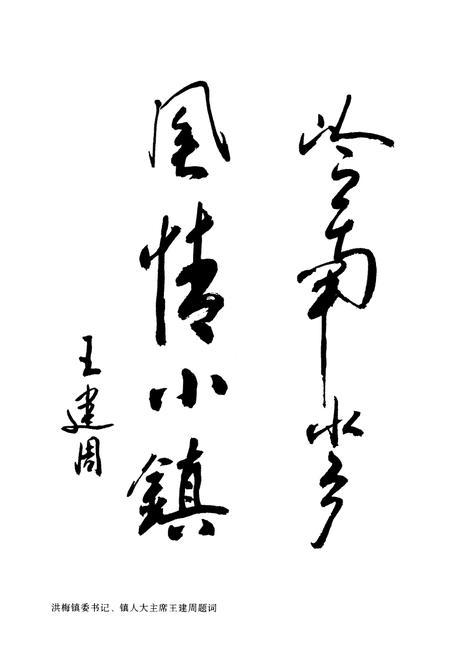 岭南水乡
风情小鎮
王建周
洪梅镇委书记、镇人大主席王建周题词